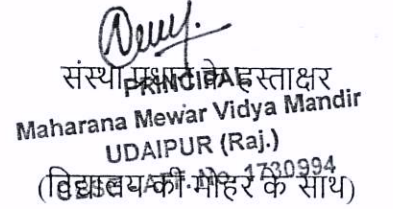 संस्था प्रधान के हस्ताक्षर
PRINCIPAL
Maharana Mewar Vidya Mandir
UDAIPUR (Raj.)
1730994
(विद्यालय की मोहर के साथ)